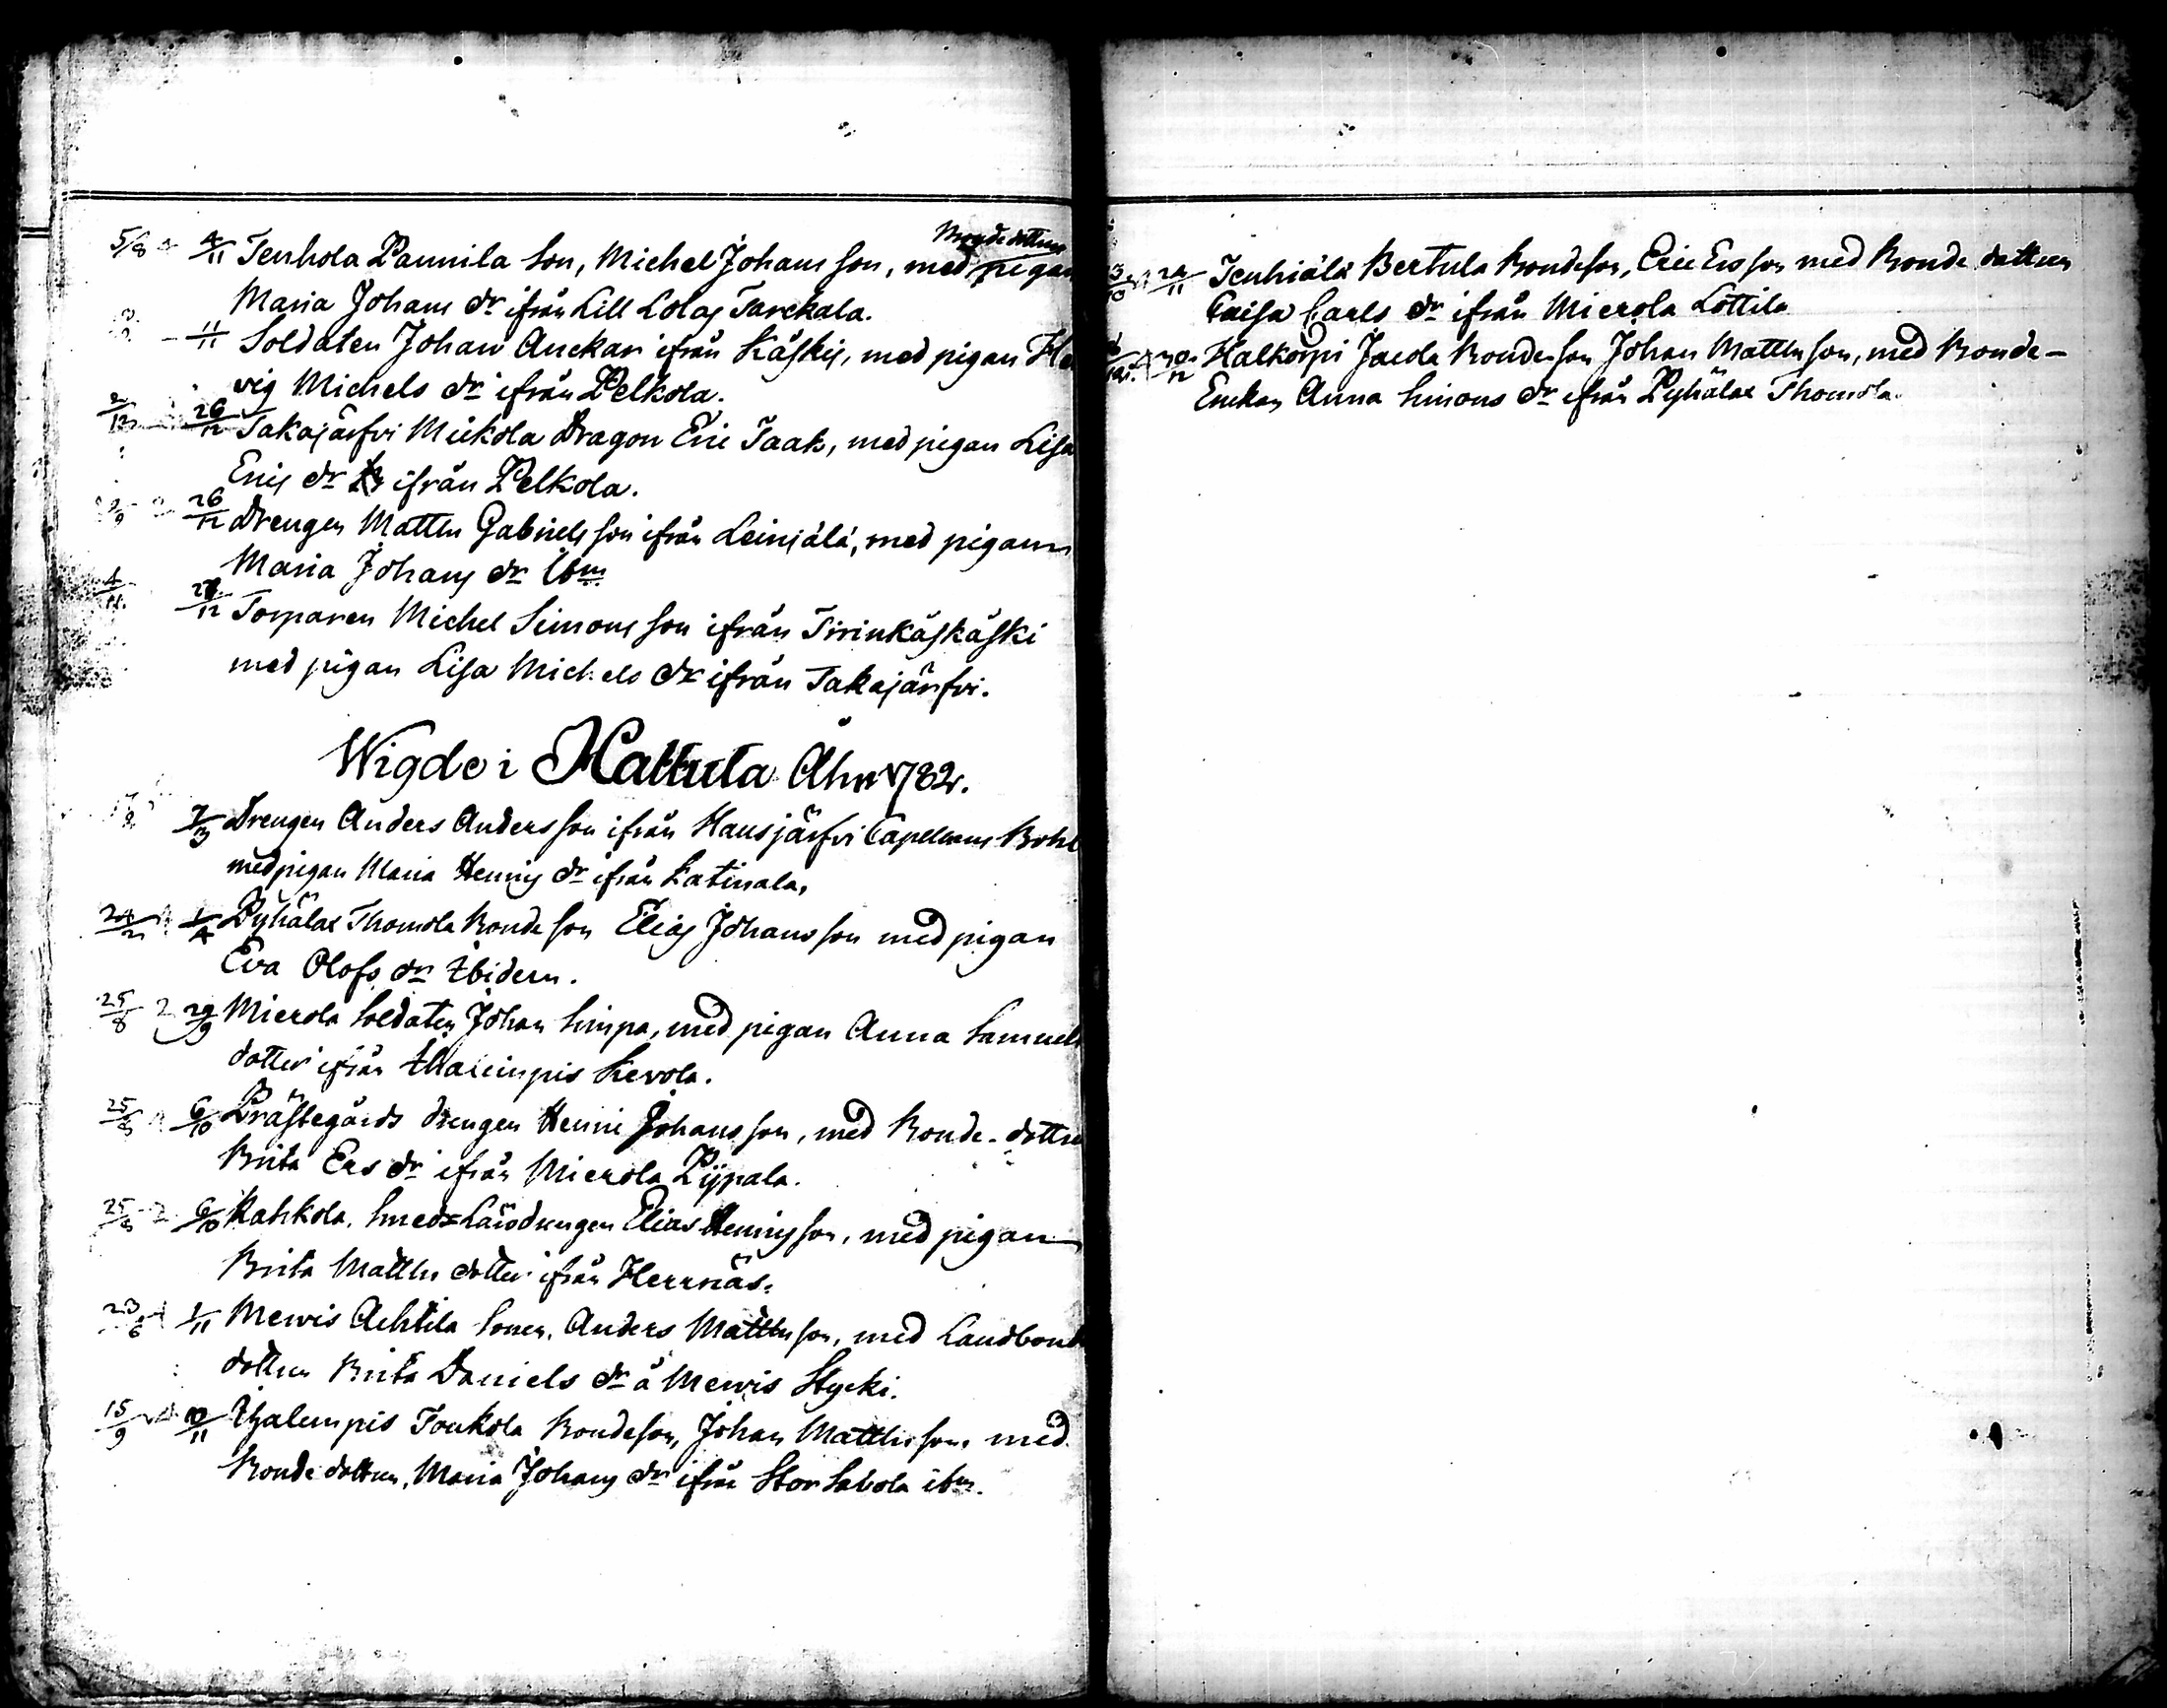 Bondedottren
5/8 4/11 Tenhola Pannila Son, Michel Johans son, med pigan
Maria Johans dr ifrån Lill Lolas Tarckala.
11/11 Soldaten Johan Anckar ifrån Käskis, med pigan He
vig Michels dr ifrån Pelkola.
2/12 26/12 Takajärfvi Mickola Dragon Eric Taak, med pigan Lisa
Erics dr ifrån Pelkola.
26/12 Drengen Matths Gabriels son ifrån Leiniälä, med pigan
Maria Johans dr ibm
4/11 27/12 Torparen Michel Simons son ifrån Tirinkäskäski
med pigan Lisa Michels dr ifrån Takajärfvi.
Wigde i Hattula Åhr 1782.
7/3 Drengen Anders Anders son ifrån Hausjärfvi Capellans Bohl
med pigan Maria Henrics dr ifrån Katinala,
24/2 1/4 Pyhälax Thomola Bonde son Elias Johans son med pigan
Eva Olofs dr ibidem.
25/8 2 29/9 Mierola Soldaten Johan Simpa, med pigan Anna Samuels
dotter ifrån Ihalempis Kerola.
25/8 6/10 Prästegårds drengen Henric Johans son, med Bonde-dottren
Brita Ers dr ifrån Mierola Pijpala.
25/8 2 6/10 Rahkola Smeds Lärodrengen Elias Henrics son, med pigan
Brita Matths dotter ifrån Herrnäs.
23/6 1/11 Mervis Achtila Sonen, Anders Matths son, med Landbonde
dottren Brita Daniels dr å Mervis Stycki.
15/9 10/11 Ihalempis Toukola Bondeson, Johan Matths son, med
Bonde dottren, Maria Johans dr ifrån Stor Sabola ibm.
13/10 24/11 Tenhiälä Bertula Bondeson, Eric Ers son med Bonde dottren
Caisa Carls dr ifrån Mierola Lottila
30/12 Halkorpi Jacola Bondeson Johan Matths son, med Bonde-
Enckan Anna Simons dr ifrån Pyhälax Thomola.